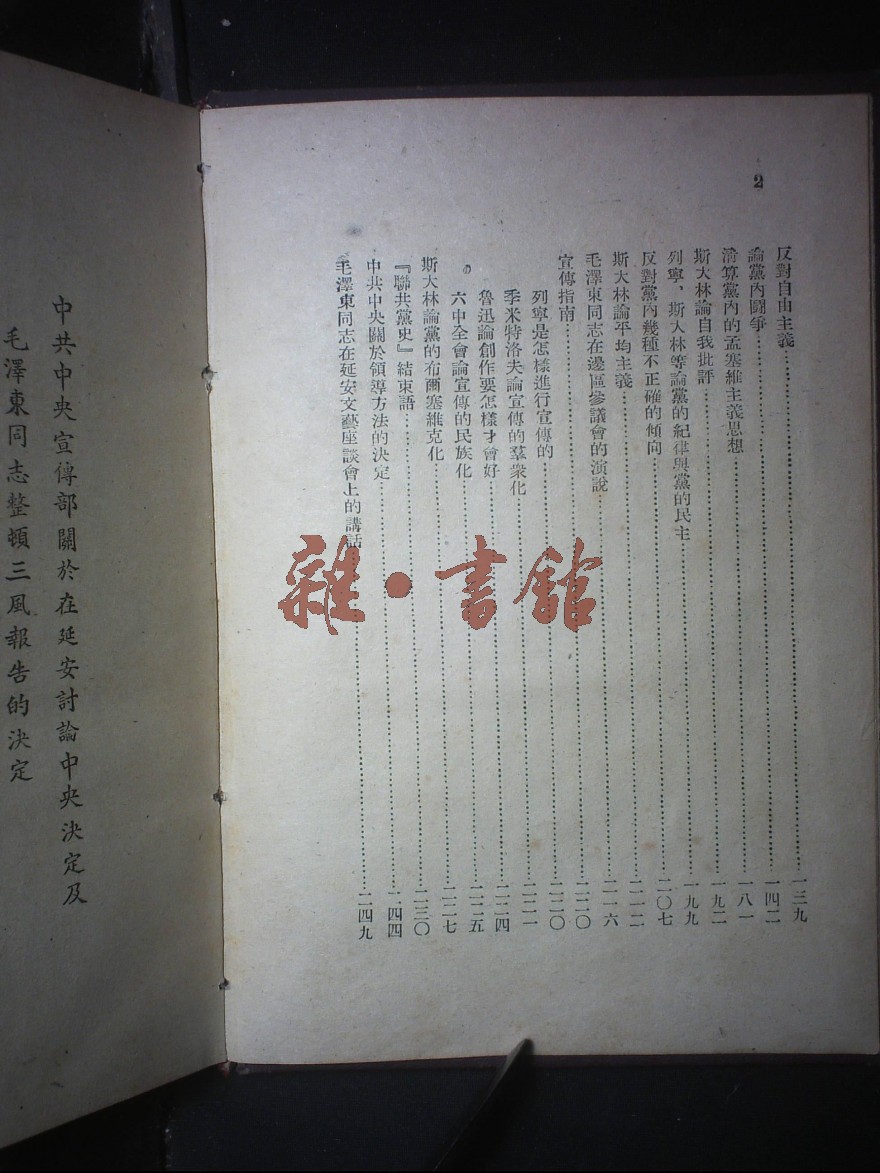 2
反對自由主義……一三九
論黨內鬪爭……一四二
清算黨內的孟塞維主義思想……一八一
斯大林論自我批評……一九二
列寧，斯大林等論黨的紀律與黨的民主……一九九
反對黨內幾種不正確的傾向……二〇七
斯大林論平均主義……二一二
毛澤東同志在邊區參議會的演說……二一六
宣傳指南……二二〇
列寧是怎樣進行宣傳的……二二〇
季米特洛夫論宣傳的羣衆化……二二一
魯迅論創作要怎樣才會好……二二四
六中全會論宣傳的民族化……二二五
斯大林論黨的布爾塞維克化……二二七
『聯共黨史』結束語……二三〇
中共中央關於領導方法的決定……二四四
毛澤東同志在延安文藝座談會上的講話……二四九
雜•書館
中共中央宣傳部關於在延安討論中央決定及
毛澤東同志整頓三風報告的決定